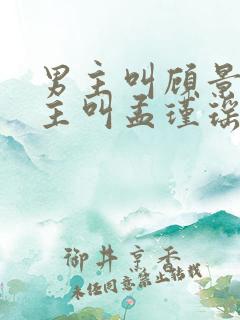 男主叫顾景
主叫孟瑾瑶
御井烹香
未经同意禁止转载